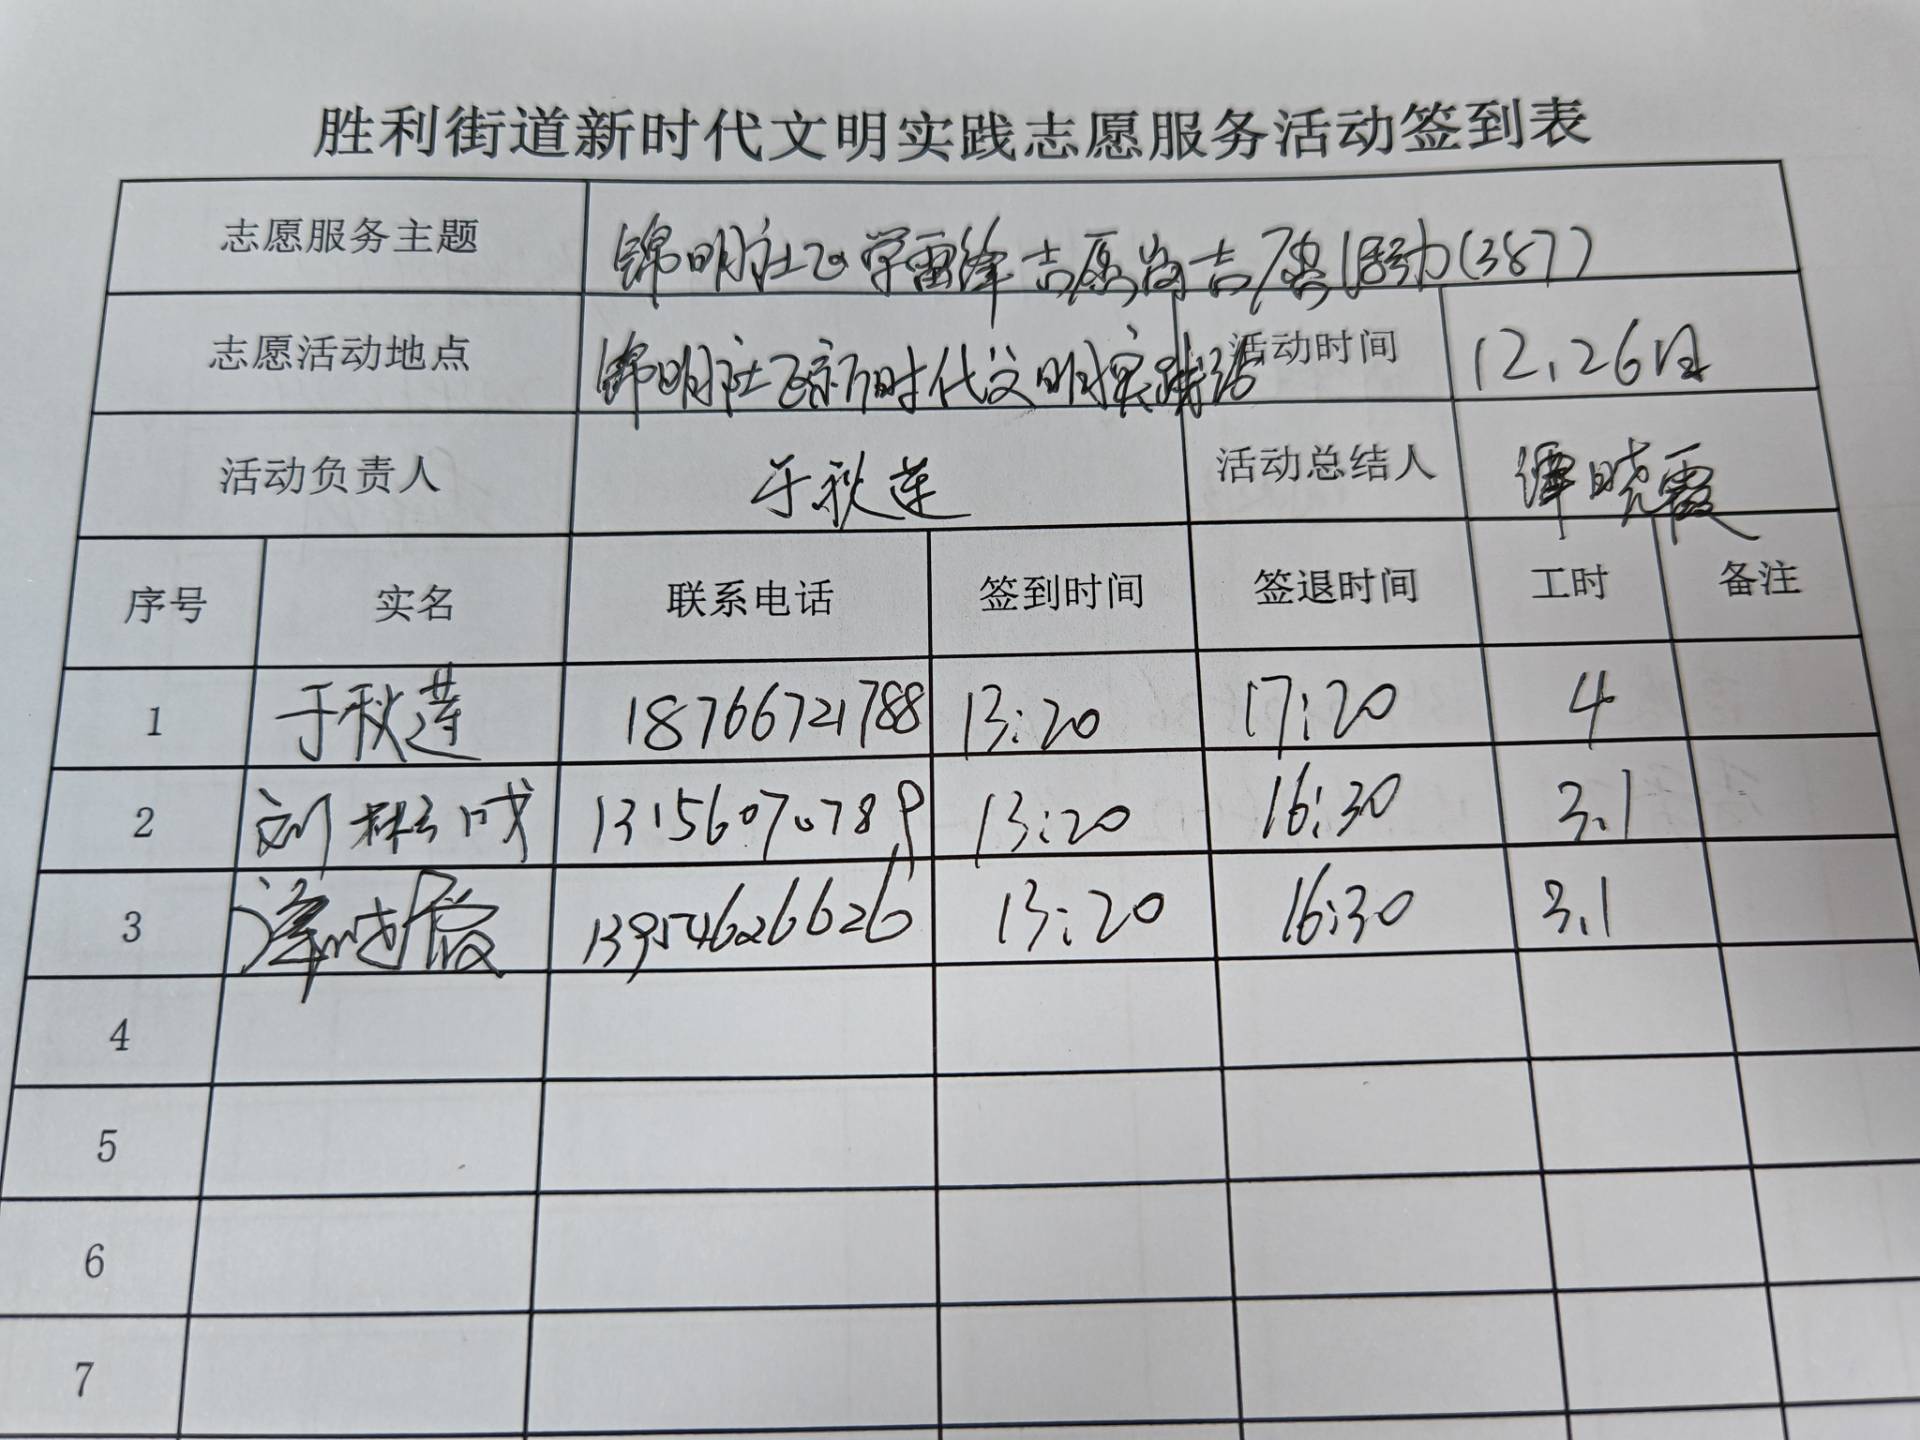 胜利街道新时代文明实践志愿服务活动签到表
志愿服务主题 锦明社区学雷锋志愿岗志愿活动(387)
志愿活动地点 锦明社区新时代文明实践站 活动时间 12.26日
活动负责人 于秋莲 活动总结人 谭晓霞
序号 实名 联系电话 签到时间 签退时间 工时 备注
1 于秋莲 18766721788 13:20 17:20 4
2 刘 13156070789 13:20 16:30 3.1
3 谭晓霞 13954626626 13:20 16:30 3.1
4
5
6
7